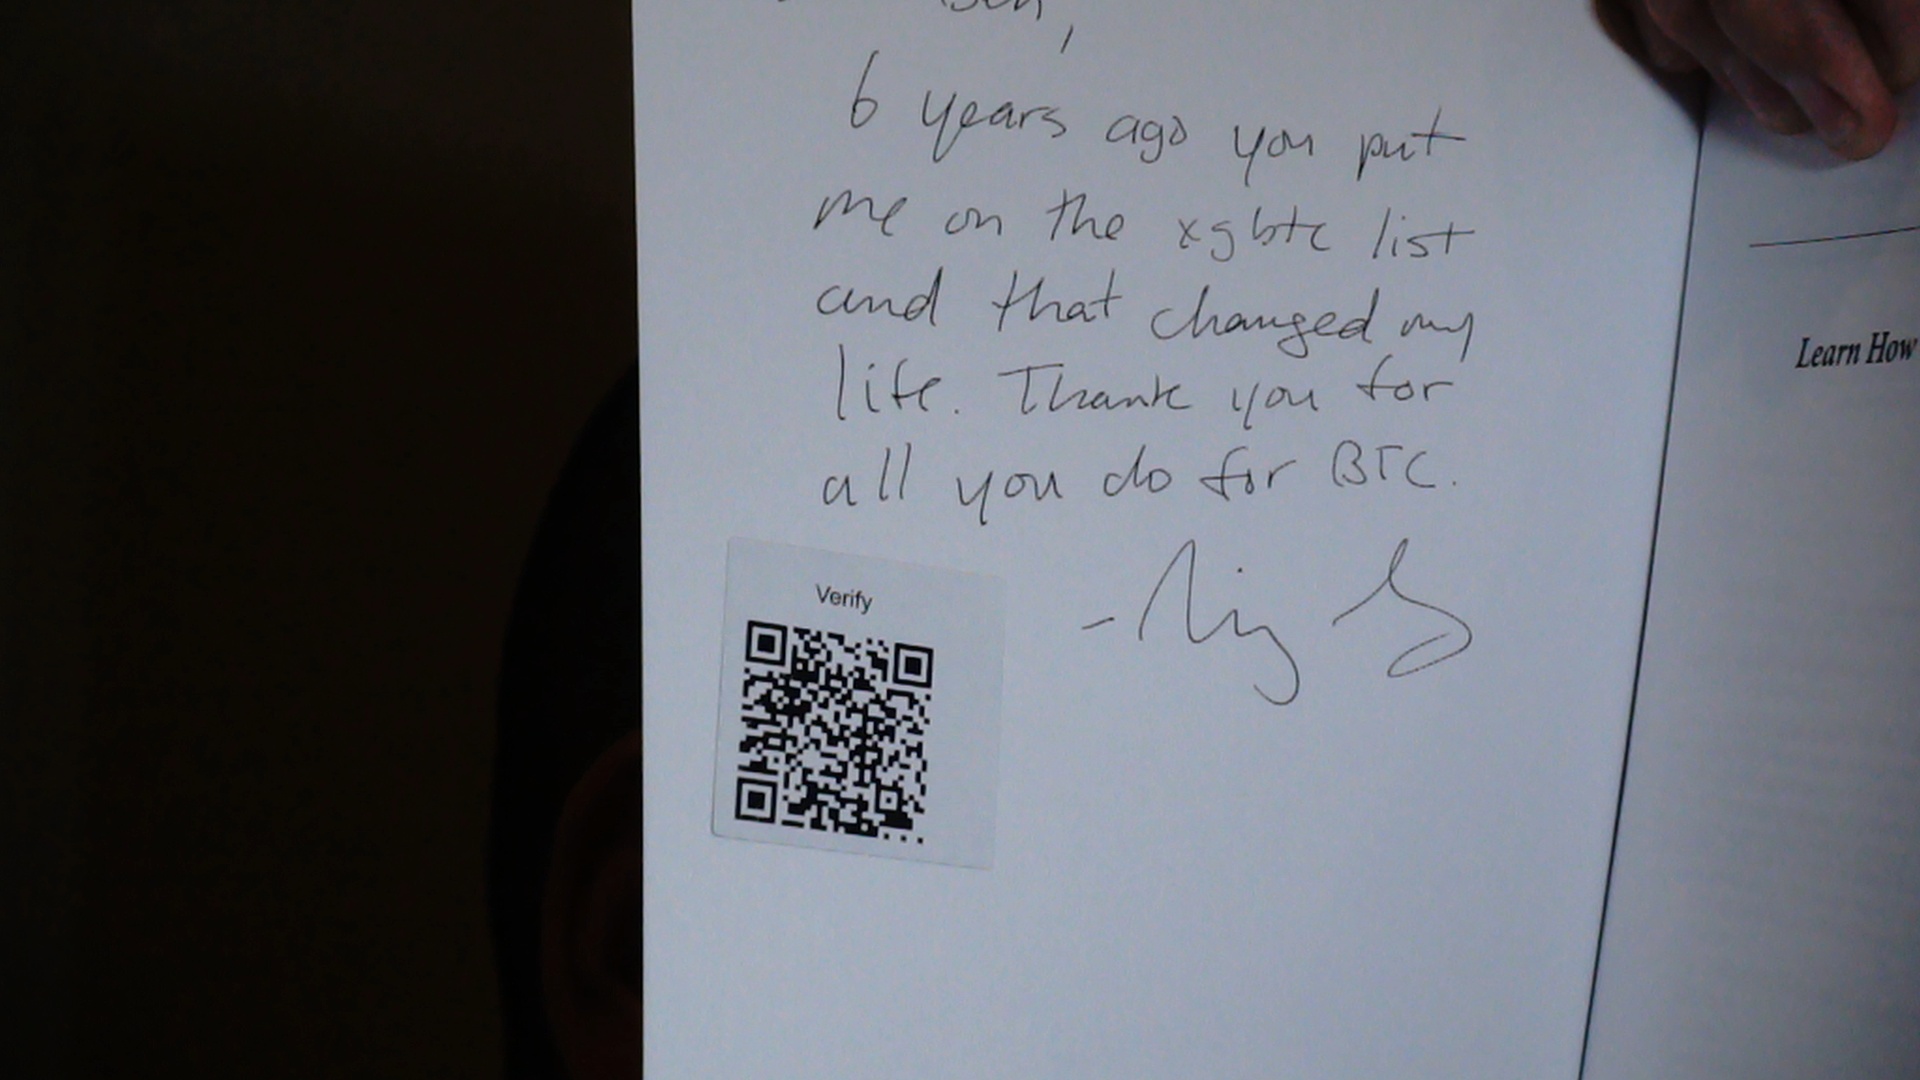 Ben,
6 years ago you put
me on the xgbtc list
and that changed my
life. Thank you for
all you do for BTC.
Verify
Learn How